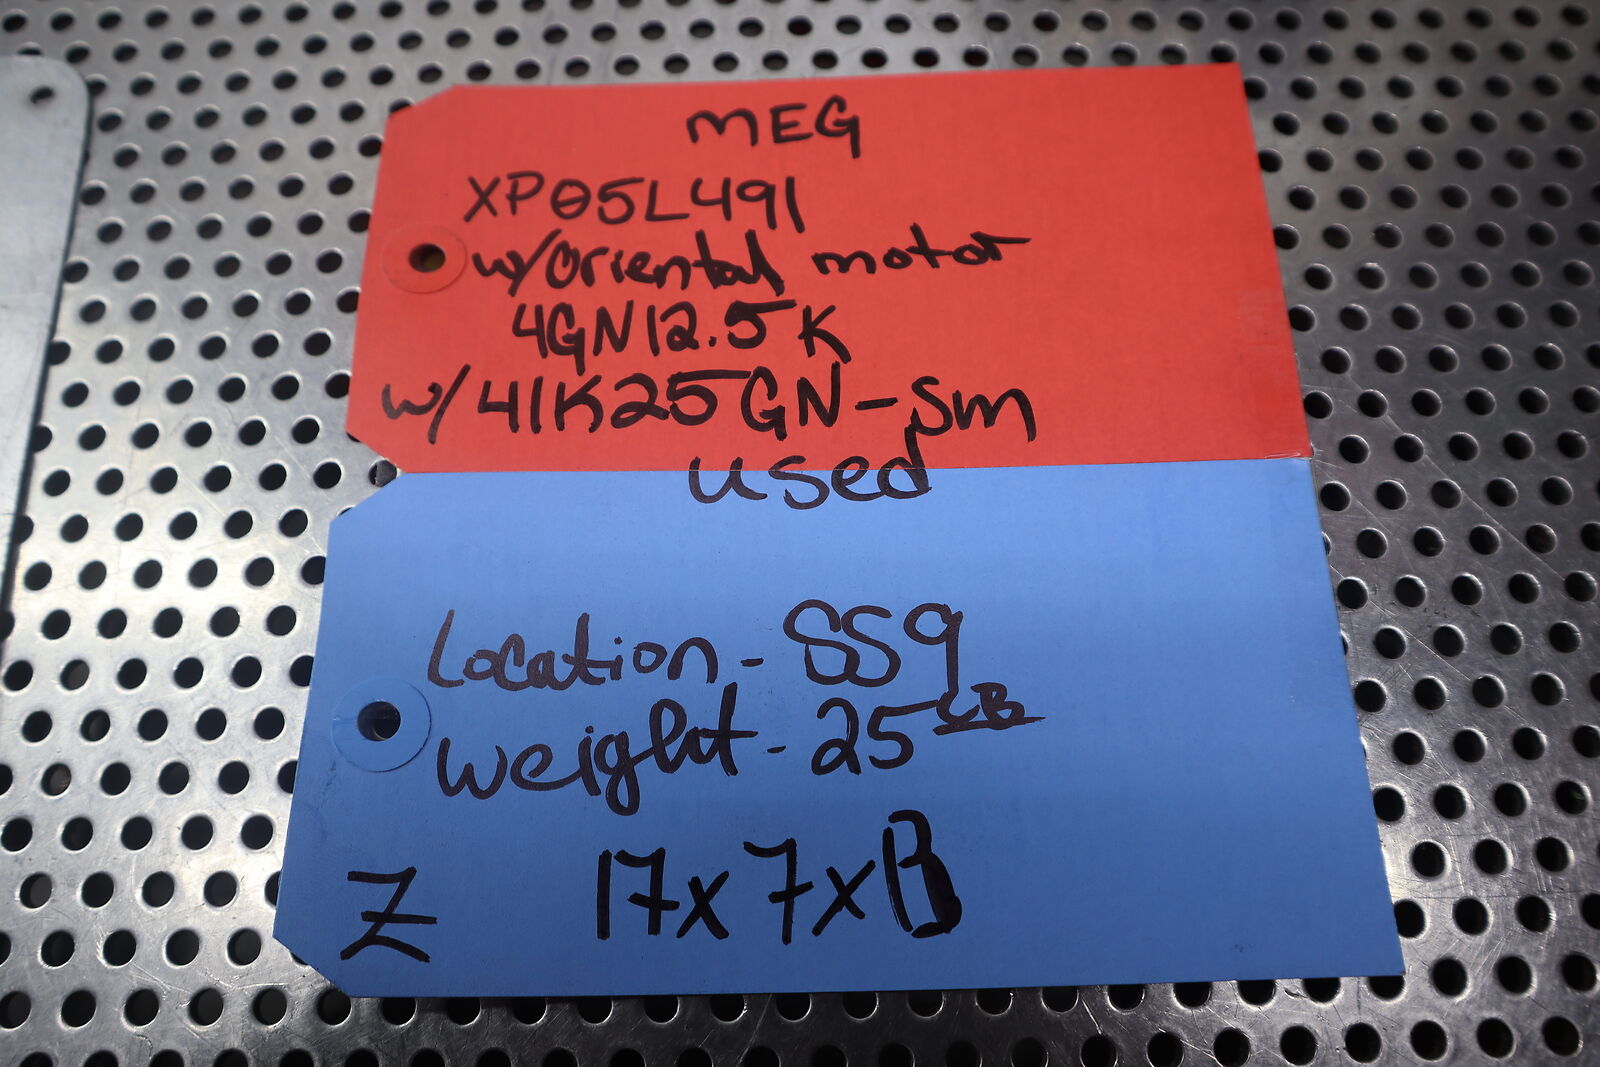 MEG
XP05L491
w/Oriental motor
4GN12.5K
w/41K25GN-Sm
used
Location - SS9
Weight - 25 LB
Z 17x7x13